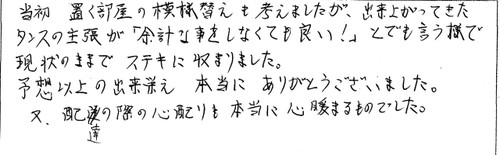 当初 置く部屋の模様替えも考えましたが、出来上がってきた
タンスの主張が「余計な事をしなくても良い!」とでも言う様で
現状のままで ステキに収まりました。
予想以上の出来栄え 本当に ありがとうございました。
又、配達の際の心配りも本当に心暖まるものでした。